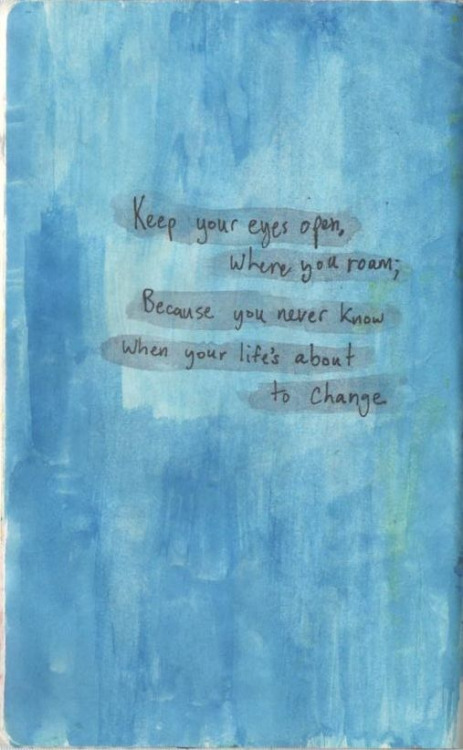 Keep your eyes open,
where you roam;
Because you never know
when your life's about
to change